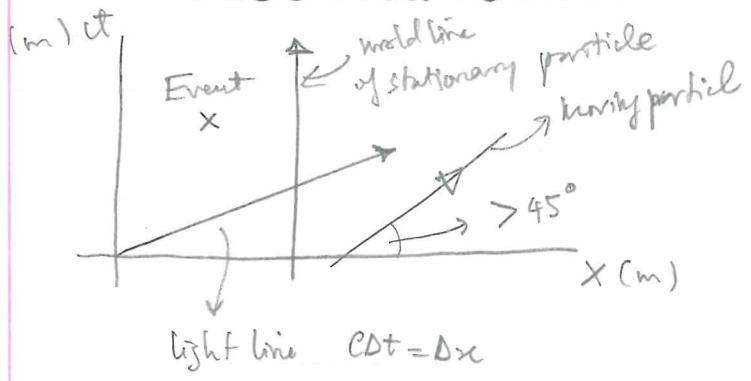 (m) ct
world line
of stationary particle
Event
x
moving particl
> 45°
X (m)
light line CΔt = Δx